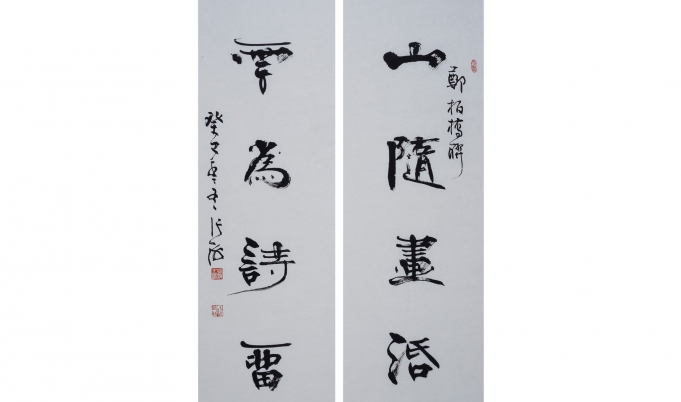 山隨畫活
鄭板橋聯
雲為詩留
癸巳 張海